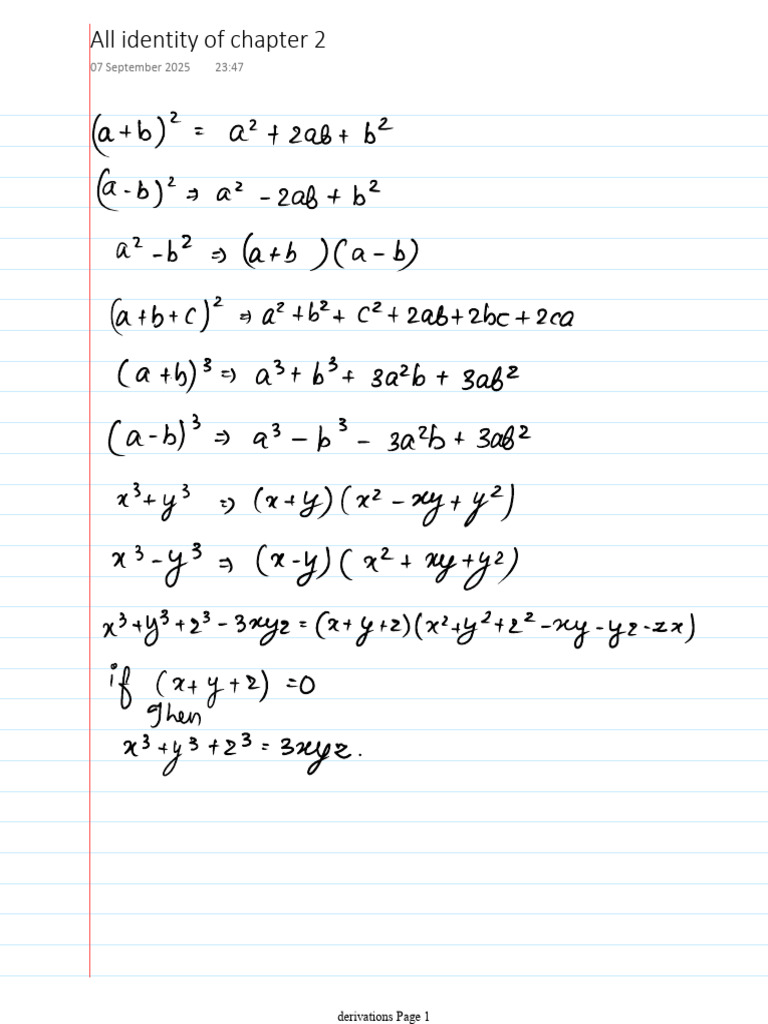 All identity of chapter 2
07 September 2025 23:47
(a+b)² = a² + 2ab + b²
(a-b)² ⇒ a² - 2ab + b²
a² - b² ⇒ (a+b )(a-b)
(a+b+c)² ⇒ a² + b² + c² + 2ab + 2bc + 2ca
(a+b)³ ⇒ a³ + b³ + 3a²b + 3ab²
(a-b)³ ⇒ a³ - b³ - 3a²b + 3ab²
x³ + y³ ⇒ (x+y)(x² - xy + y²)
x³ - y³ ⇒ (x-y)(x² + xy + y²)
x³ + y³ + z³ - 3xyz = (x+y+z)(x² + y² + z² - xy - yz - zx)
if (x+y+z) = 0
then
x³ + y³ + z³ = 3xyz.
derivations Page 1